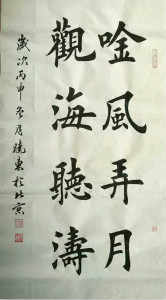 唫風弄月
觀海聽濤
歲次丙申冬月曉東於北京